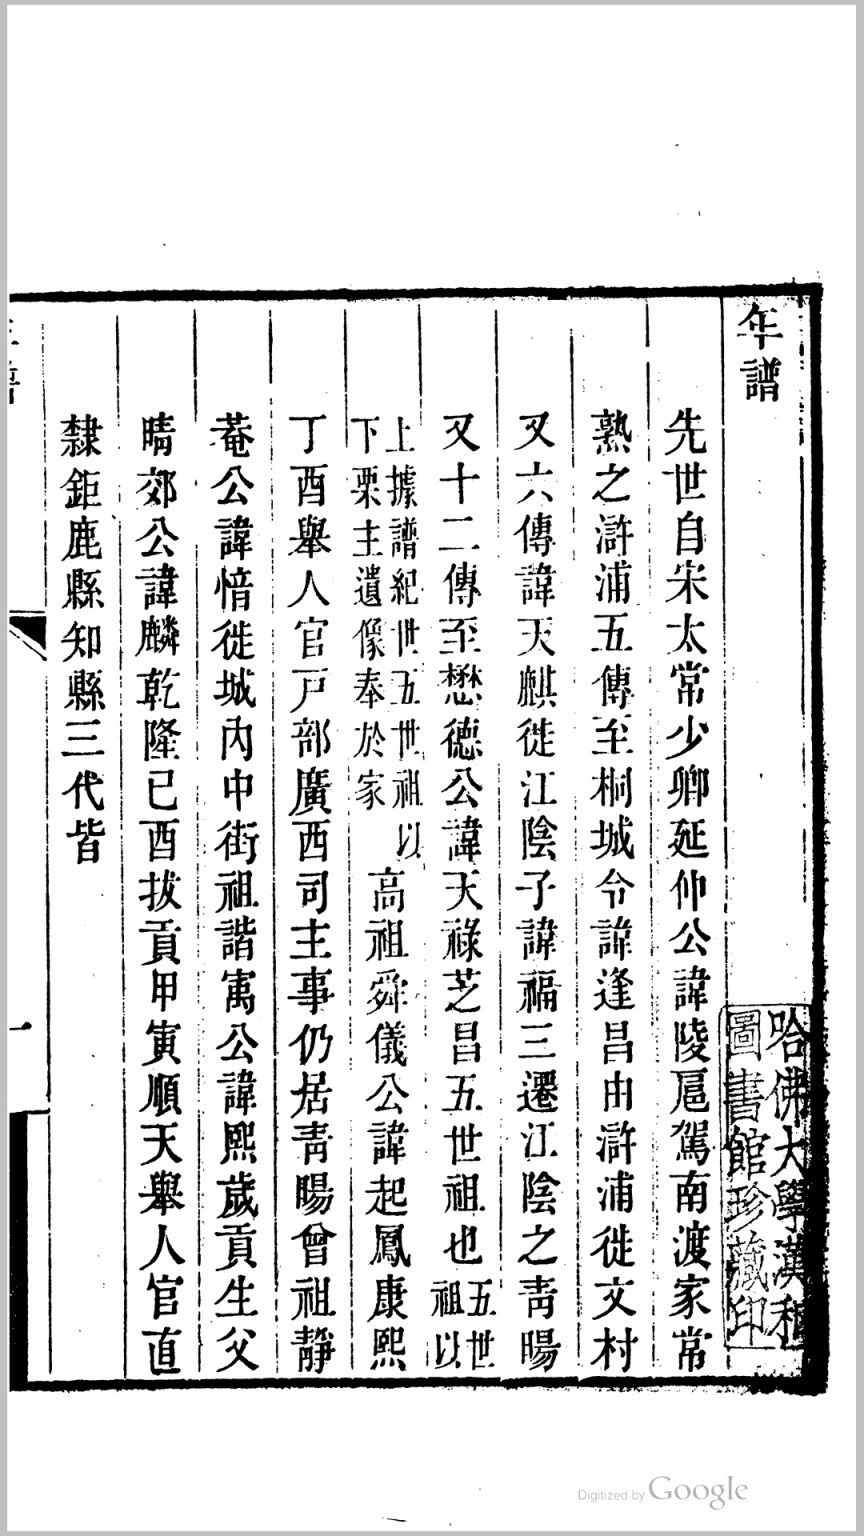 年譜
先世自宋太常少卿延仲公諱陵扈駕南渡家常
熟之滸浦五傳至桐城令諱逢昌由滸浦徙文村
又六傳諱天麒徙江陰子諱福三遷江陰之靑暘
又十二傳至懋德公諱天祿芝昌五世祖也五世祖以
上據譜紀世五世祖以下栗主遺像奉於家高祖舜儀公諱起鳳康熙
丁酉舉人官戸部廣西司主事仍居靑暘曾祖靜
菴公諱愔徙城內中街祖諧寓公諱熙歲貢生父
晴郊公諱麟乾隆己酉拔貢甲寅順天舉人官直
隸鉅鹿縣知縣三代皆
一
哈佛大學漢和
圖書館珍藏印
Digitized by Google